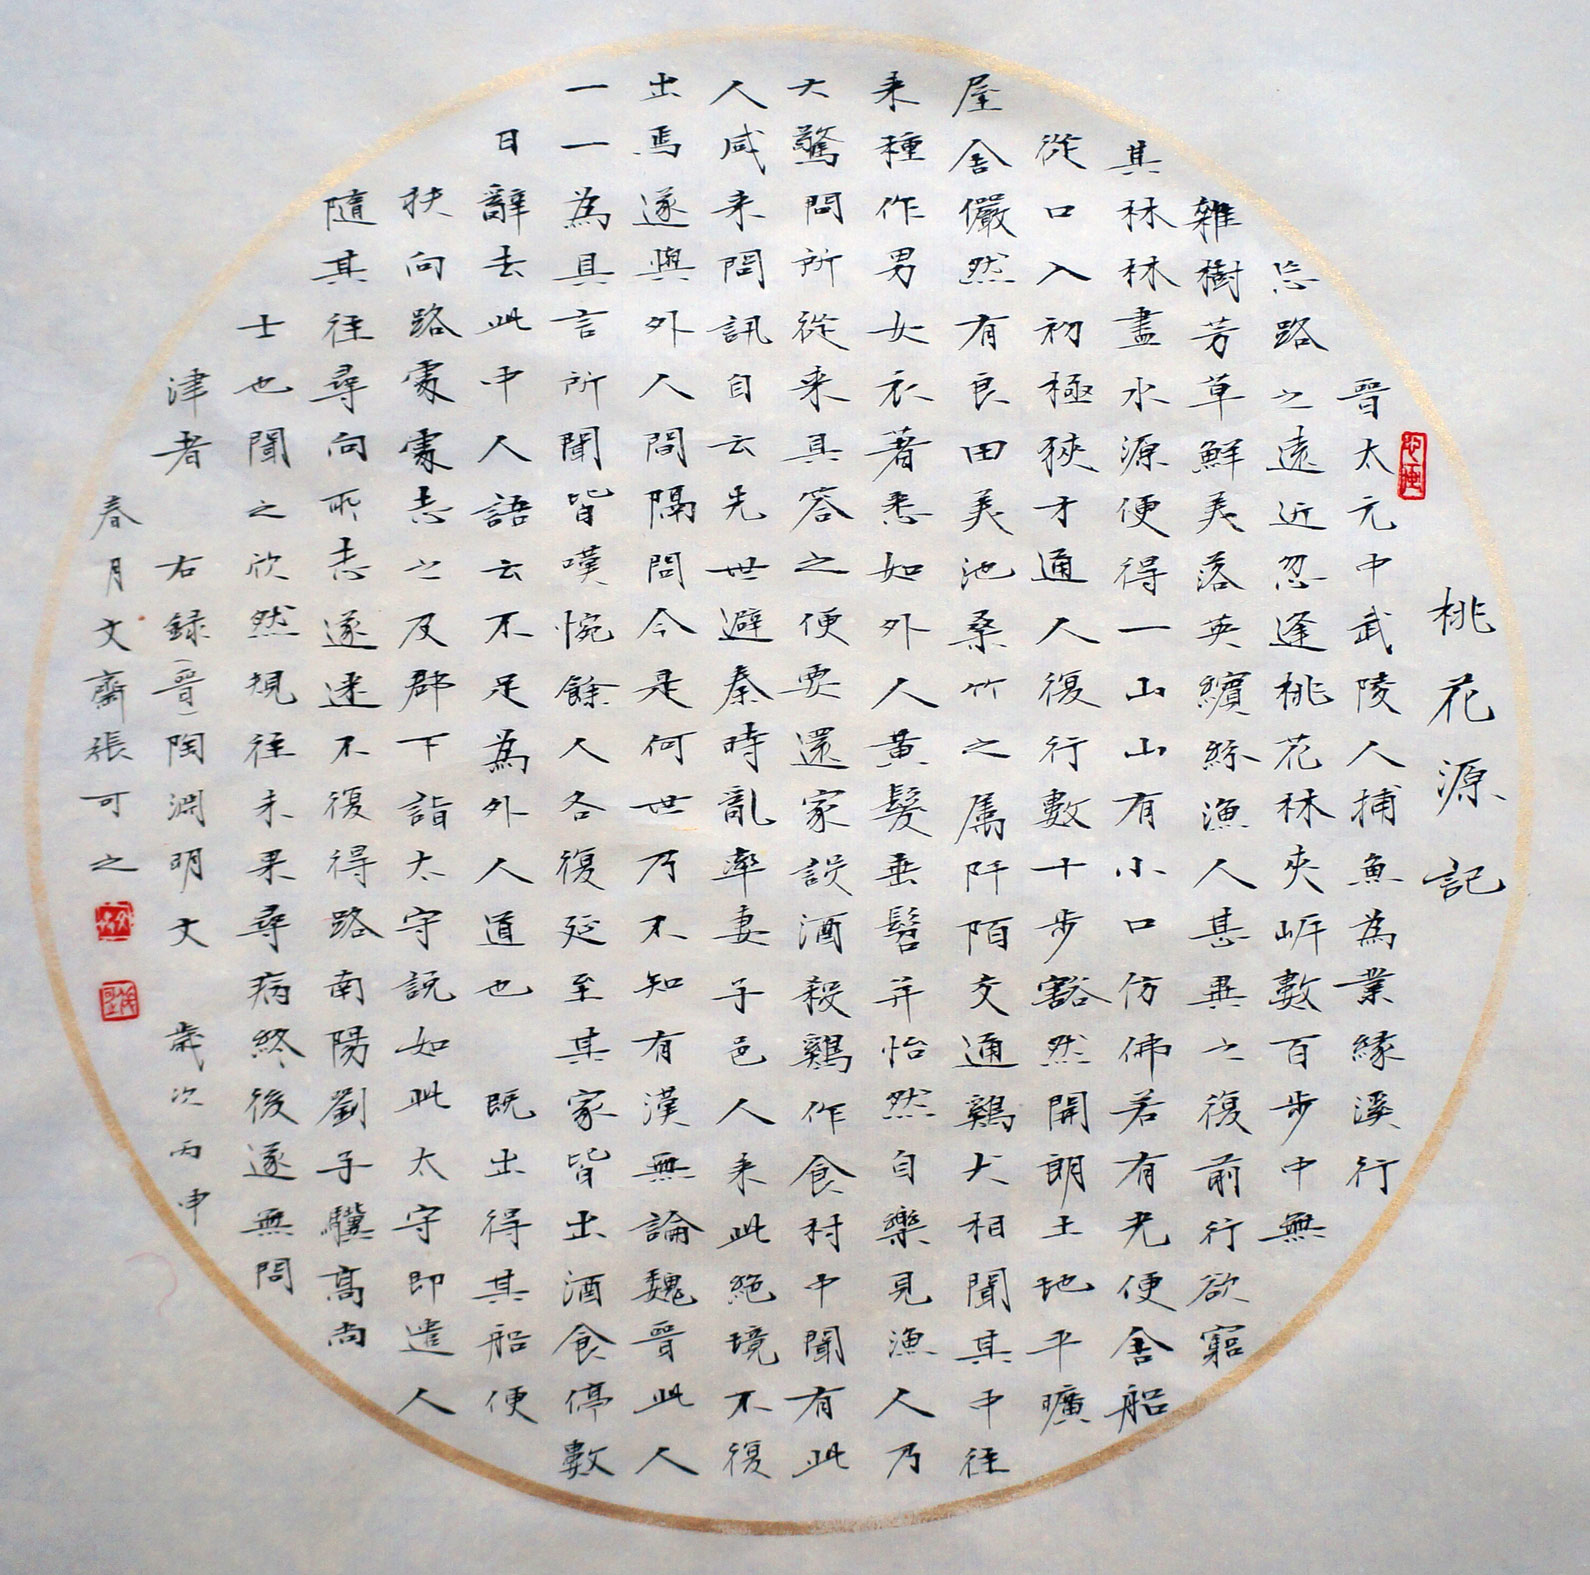 桃花源記
晉太元中武陵人捕魚為業緣溪行
忘路之遠近忽逢桃花林夾岸數百步中無
雜樹芳草鮮美落英繽紛漁人甚異之復前行欲窮
其林林盡水源便得一山山有小口仿佛若有光便舍船
從口入初極狹才通人復行數十步豁然開朗土地平曠
屋舍儼然有良田美池桑竹之屬阡陌交通鷄犬相聞其中往
来種作男女衣著悉如外人黃髮垂髫并怡然自樂見漁人乃
大驚問所從来具答之便要還家設酒殺鷄作食村中聞有此
人咸来問訊自云先世避秦時亂率妻子邑人来此絕境不復
出焉遂與外人間隔問今是何世乃不知有漢無論魏晉此人
一一為具言所聞皆嘆惋餘人各復延至其家皆出酒食停數
日辭去此中人語云不足為外人道也 既出得其船便
扶向路處處志之及郡下詣太守説如此太守即遣人
隨其往尋向所志遂迷不復得路南陽劉子驥高尚
士也聞之欣然規往未果尋病終後遂無問
津者 右録(晉)陶淵明文 歲次丙申
春月文齋張可之